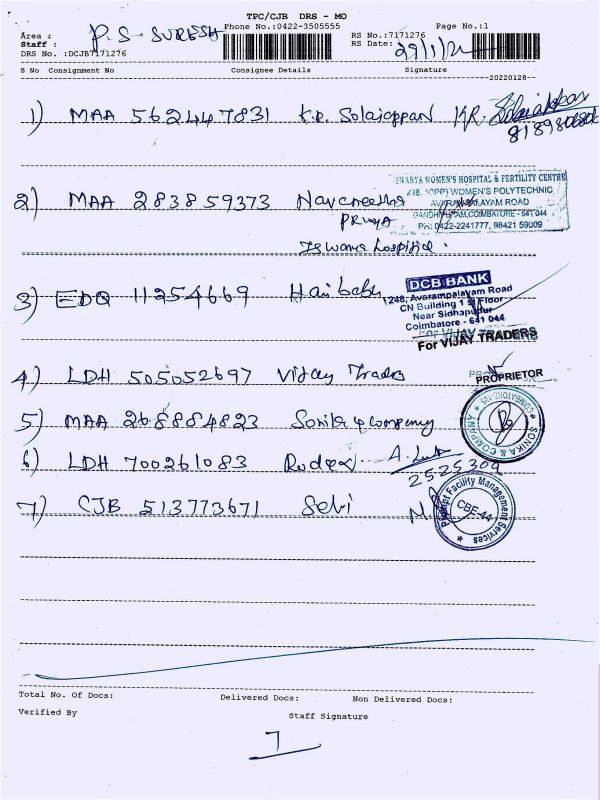 TPC/CJB DRS - MO
Phone No.:0422-3505555 Page No.:1
Area : P.S. SURESH RS No.:7171276
Staff : RS Date: 29/1/22
DRS No. :DCJB7171276
S No Consignment No Consignee Details Signature
20220128
1) MAA 562447831 K.R. Solaiappan KR. Solaiappan
2) MAA 283859373 Navaneetha
Priya
Iswarya hospital.
WOMEN'S HOSPITAL & FERTILITY CENTRE
(OPP) WOMEN'S POLYTECHNIC
ROAD
COIMBATORE - 641 044
PH: 0422-2241777, 98421 59009
3) EDQ 11254669 Hari babu
DCB BANK
1248, Avarampalayam Road
CN Building 1 st Floor
Near Sidhapudur
Coimbatore - 641 044
For VIJAY TRADERS
4) LDH 505052697 Vijay Traders
PROPRIETOR
5) MAA 268884823 Sonika & company
SONIKA & COMPANY
6) LDH 700261083
2525309
7) CJB 513773671 Selvi
Prompt Facility Management Services
CBE-44
Total No. Of Docs: Delivered Docs: Non Delivered Docs:
Verified By Staff Signature
7